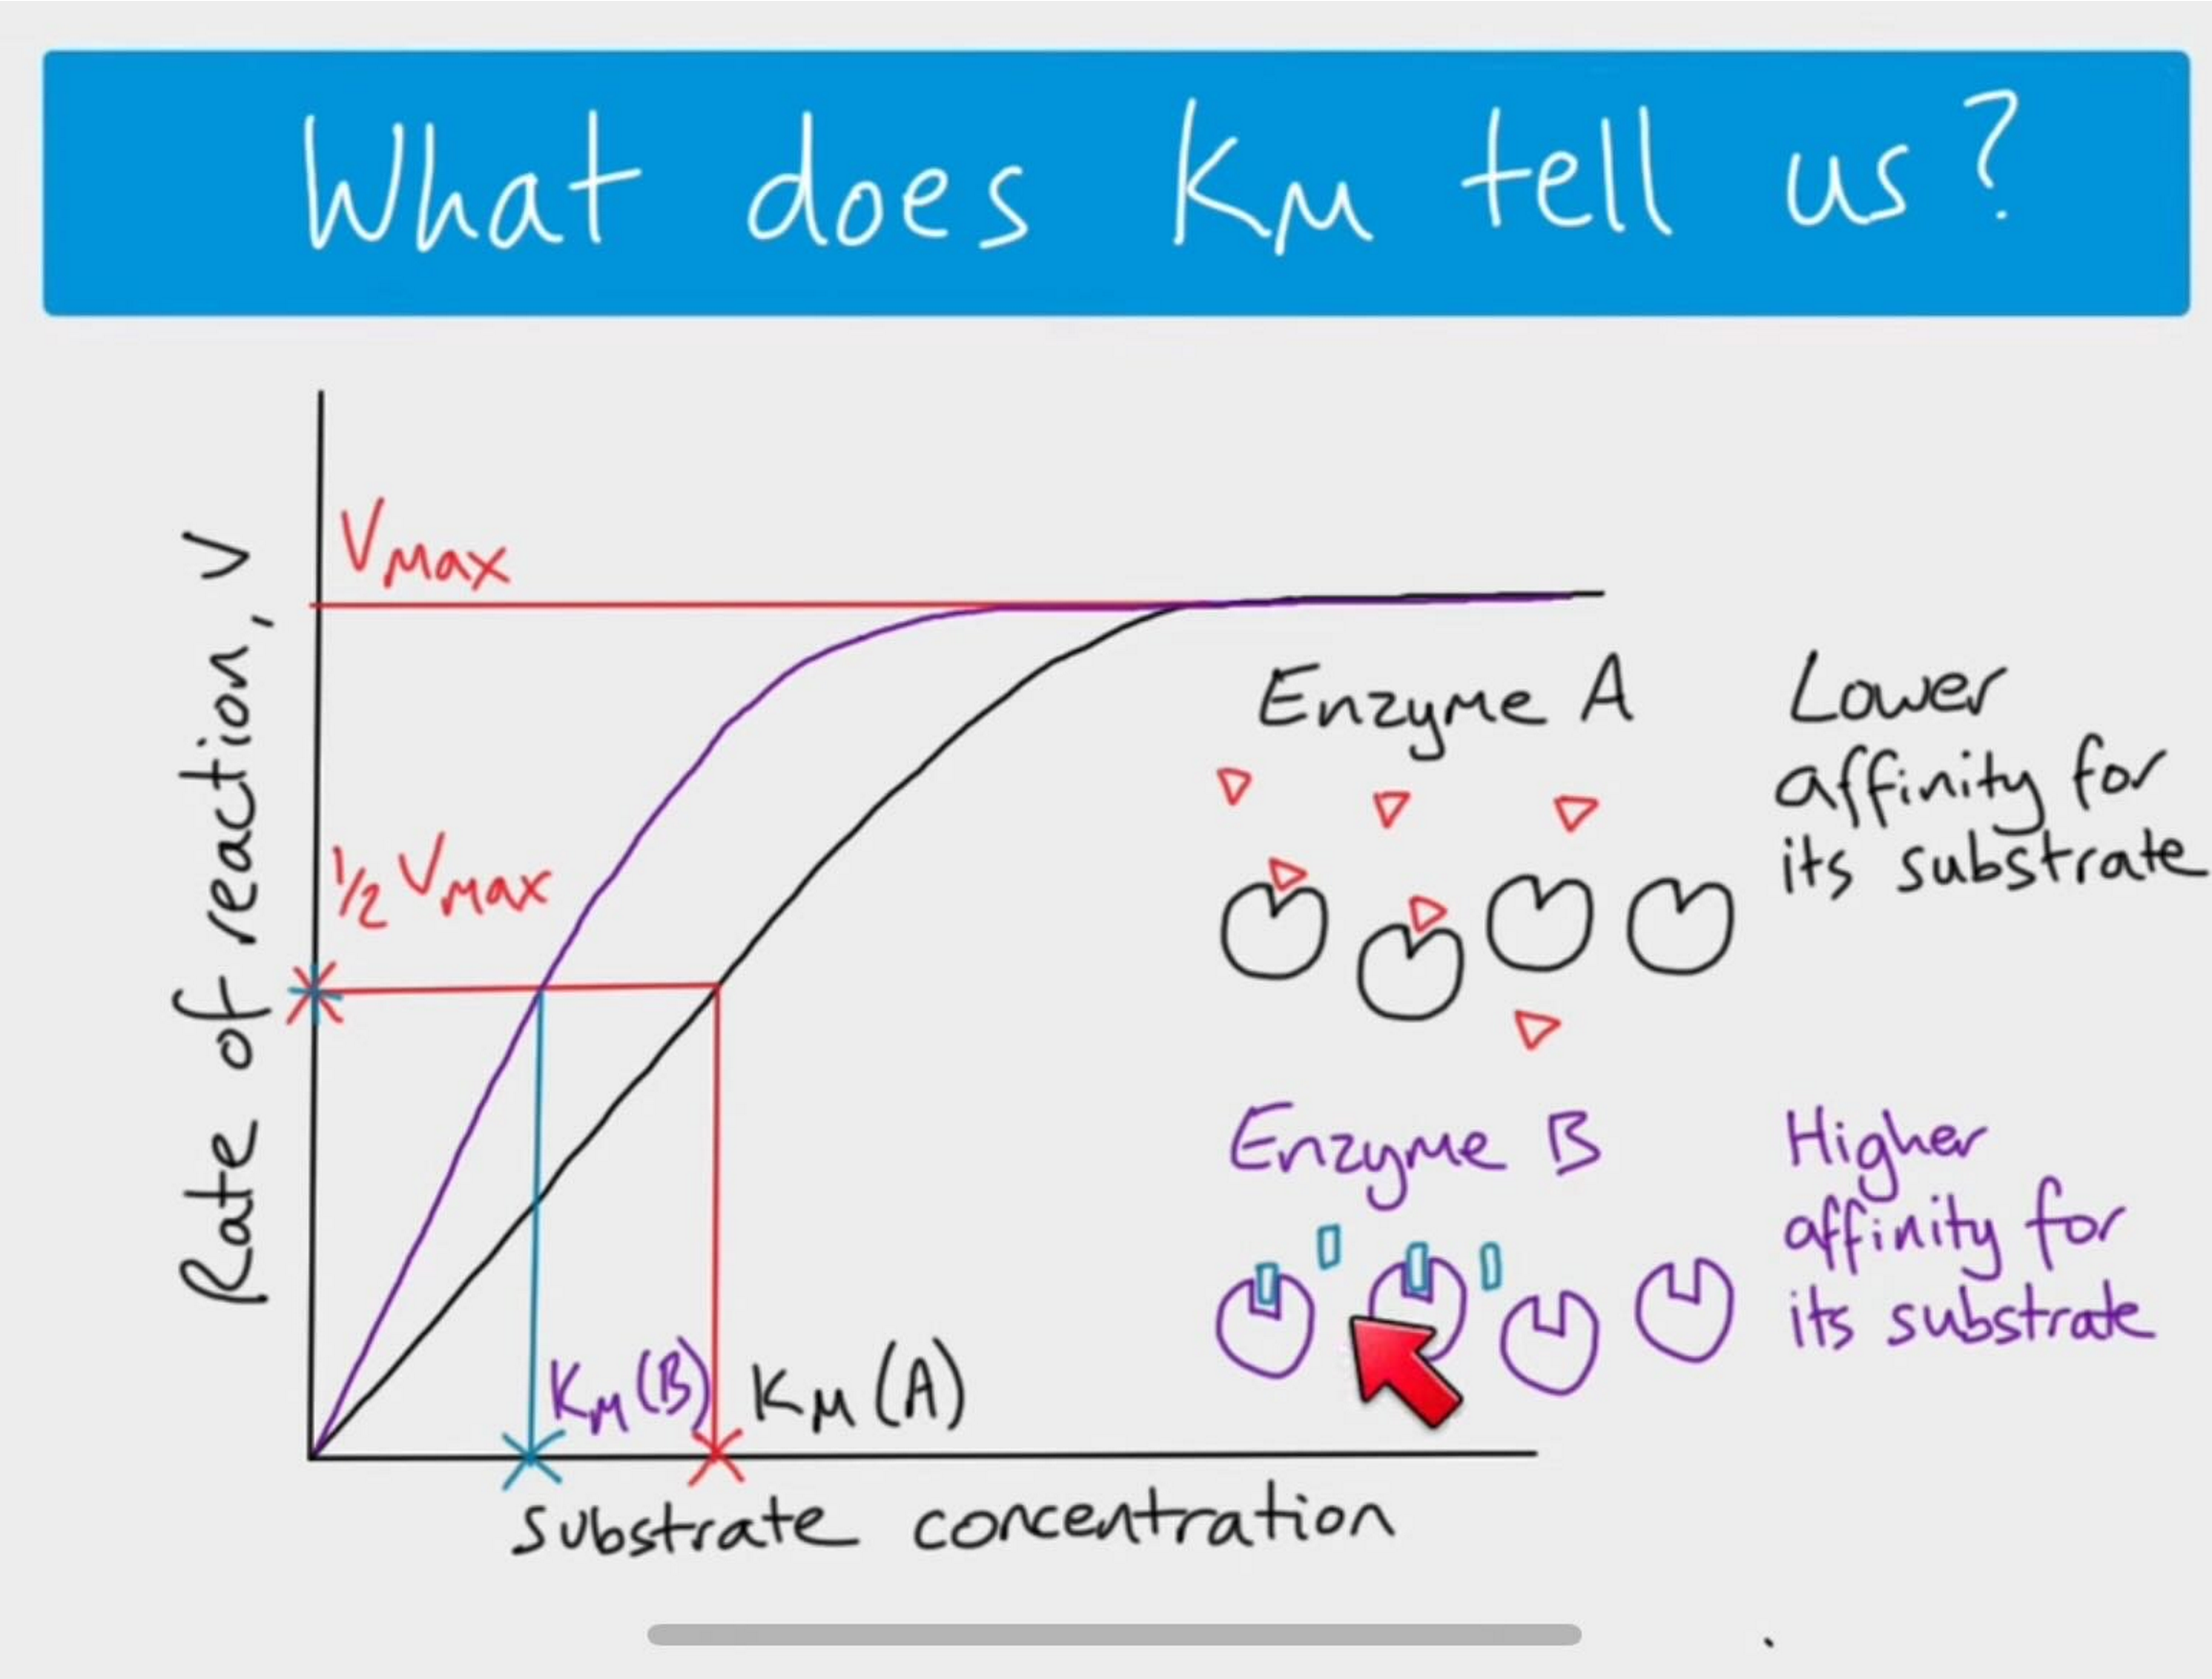 What does KM tell us?
VMax
1/2 VMax
Rate of reaction, V
KM (B)
KM (A)
substrate concentration
Enzyme A
Lower
affinity for
its substrate
Enzyme B
Higher
affinity for
its substrate